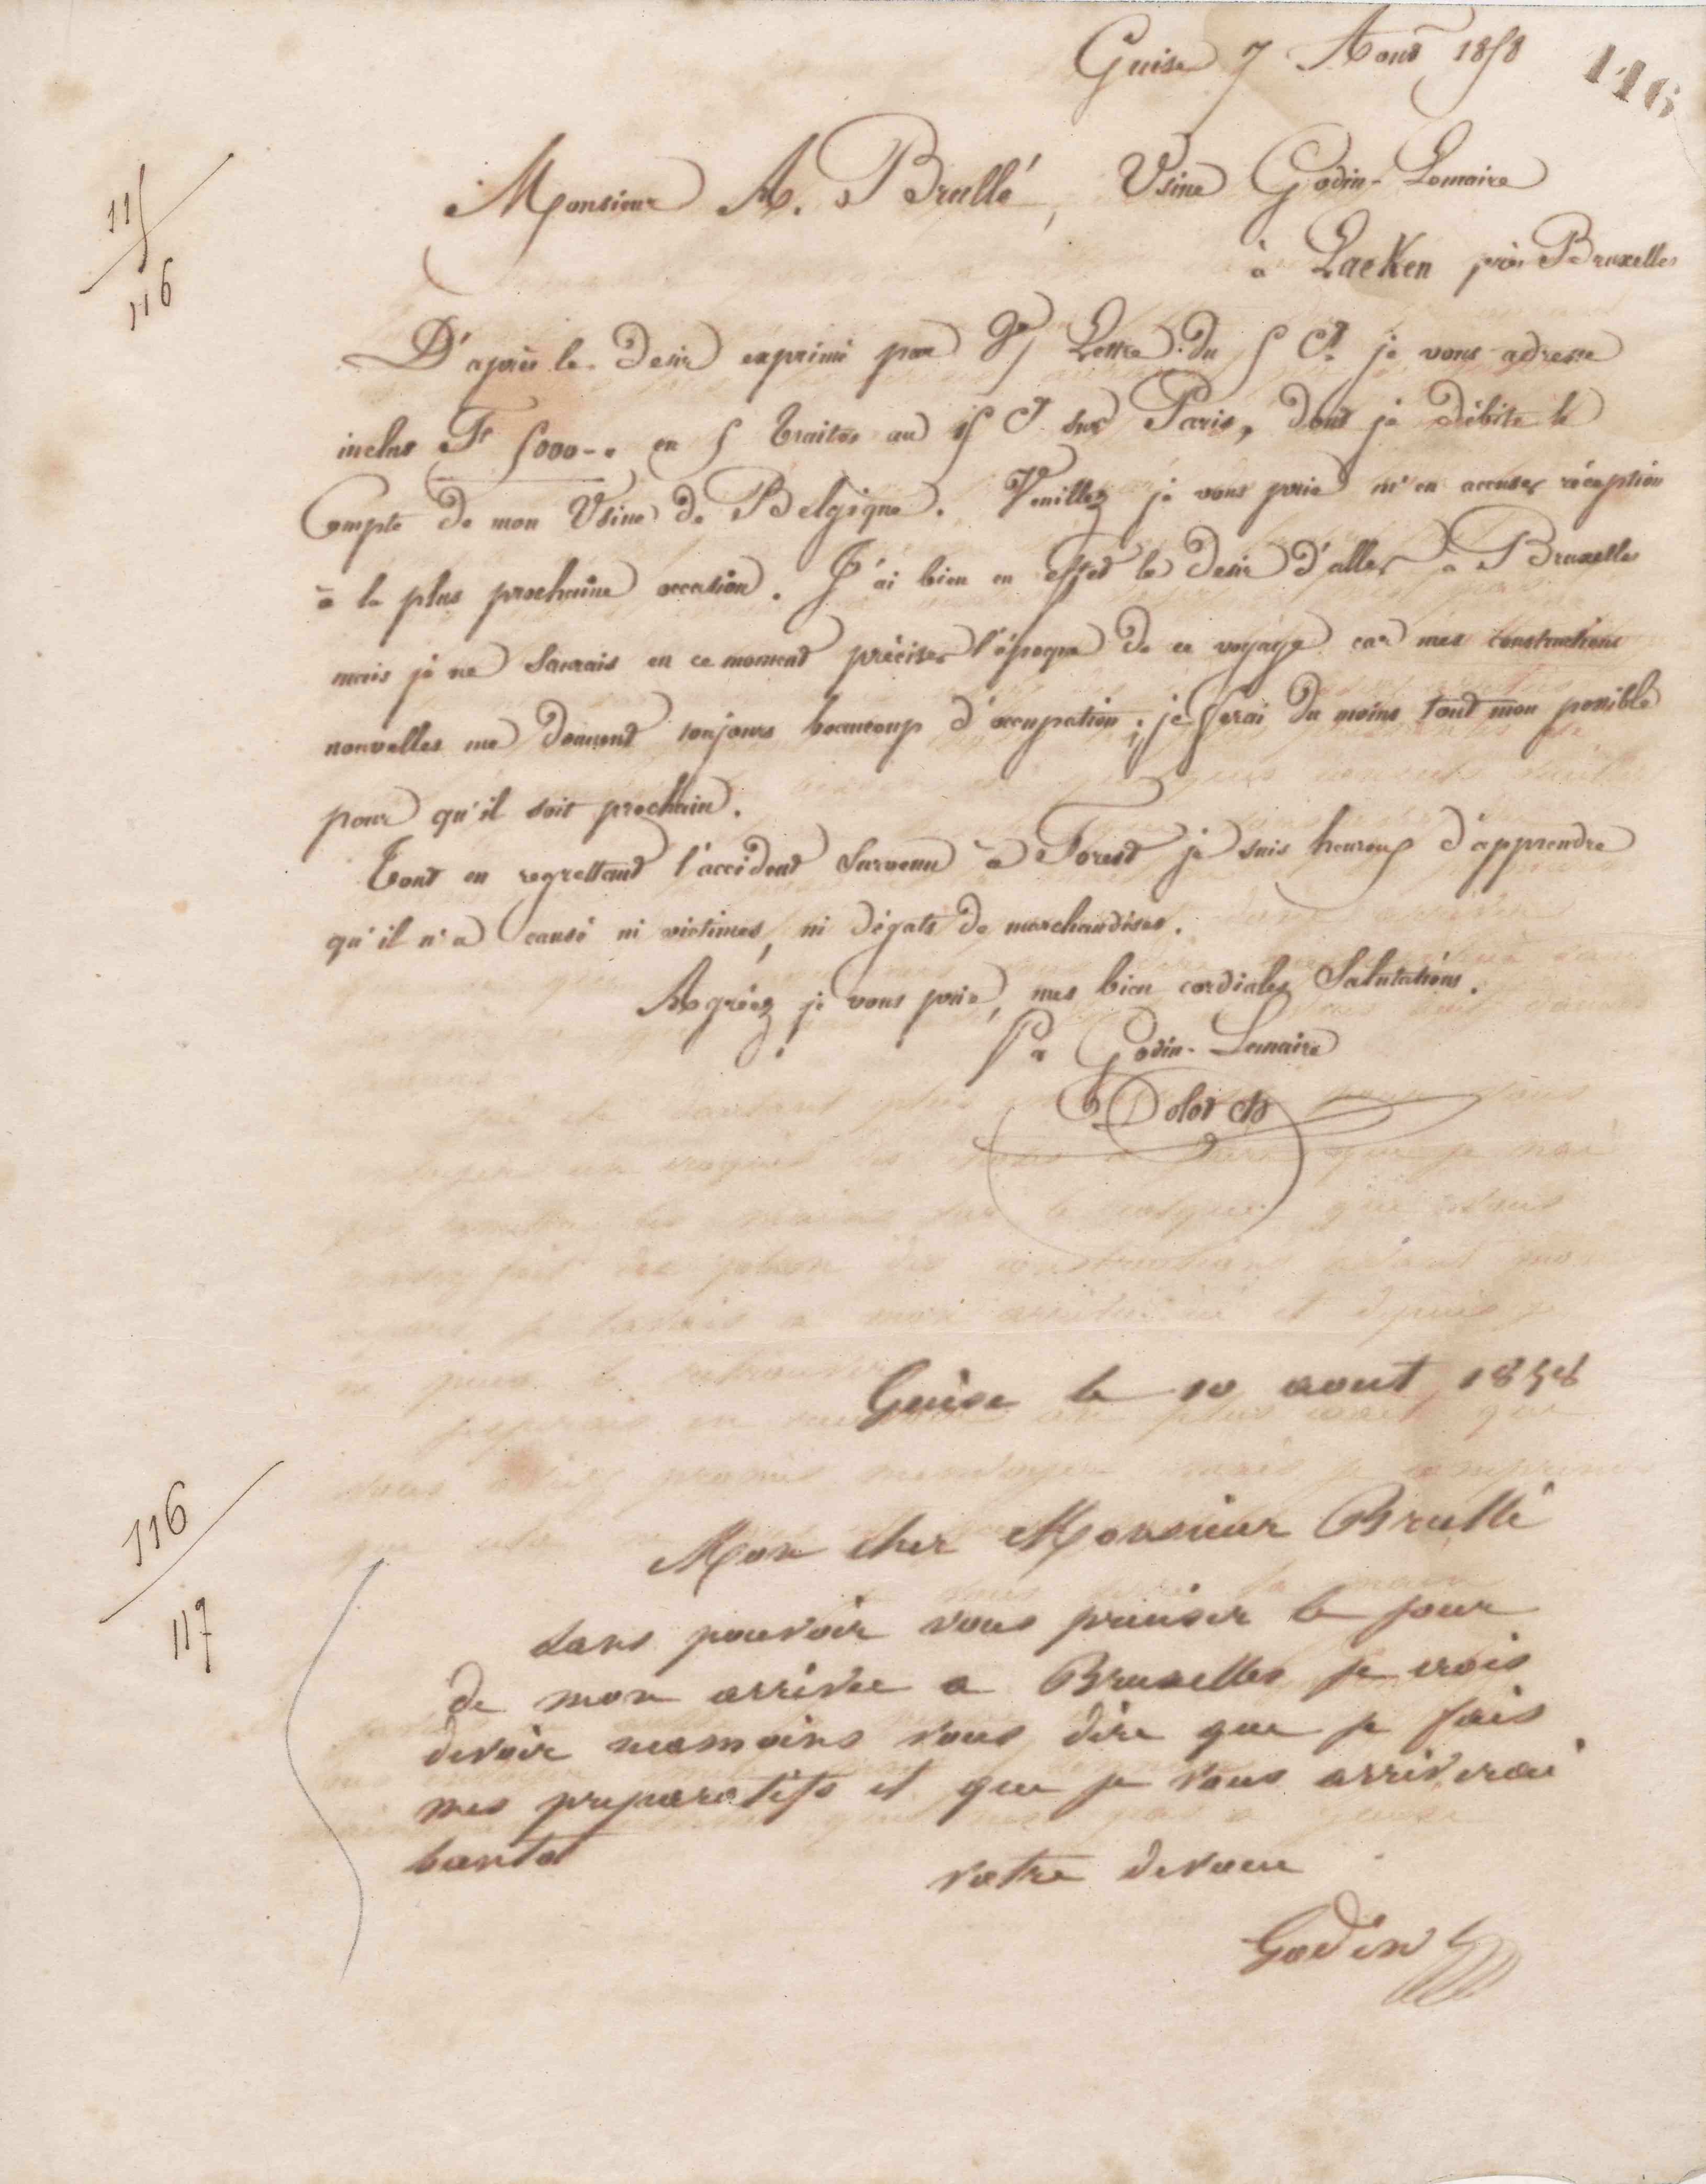 Guise 7 Aout 1858
116
115
116
Monsieur A. Brullé, Usine Godin-Lemaire
à Laeken près Bruxelles
D'après le desir exprimé par Vre Lettre du 5 Ct je vous adresse
inclus Fr 5000-. en 5 traites au 15 Ct sur Paris, dont je débite le
Compte de mon Usine de Belgique. Veuillez je vous prie m'en accuser réception
à la plus prochaine occasion. J'ai bien en effet le desir d'aller à Bruxelles
mais je ne saurais en ce moment préciser l'époque de ce voyage car mes constructions
nouvelles me donnent toujours beaucoup d'occupation; je ferai du moins tout mon possible
pour qu'il soit prochain.
Tout en regrettant l'accident survenu à Forest je suis heureux d'apprendre
qu'il n'a causé ni victimes, ni dégats de marchandises.
Agréez je vous prie, mes bien cordiales Salutations.
Pr Godin-Lemaire
Guise le 10 aout 1858
116
117
Mon cher Monsieur Brullé
sans pouvoir vous preciser le jour
de mon arrivée a Bruxelles je crois
devoir neanmoins vous dire que je fais
mes preparatifs et que je vous arriverai
bientot
votre devoué
Godin